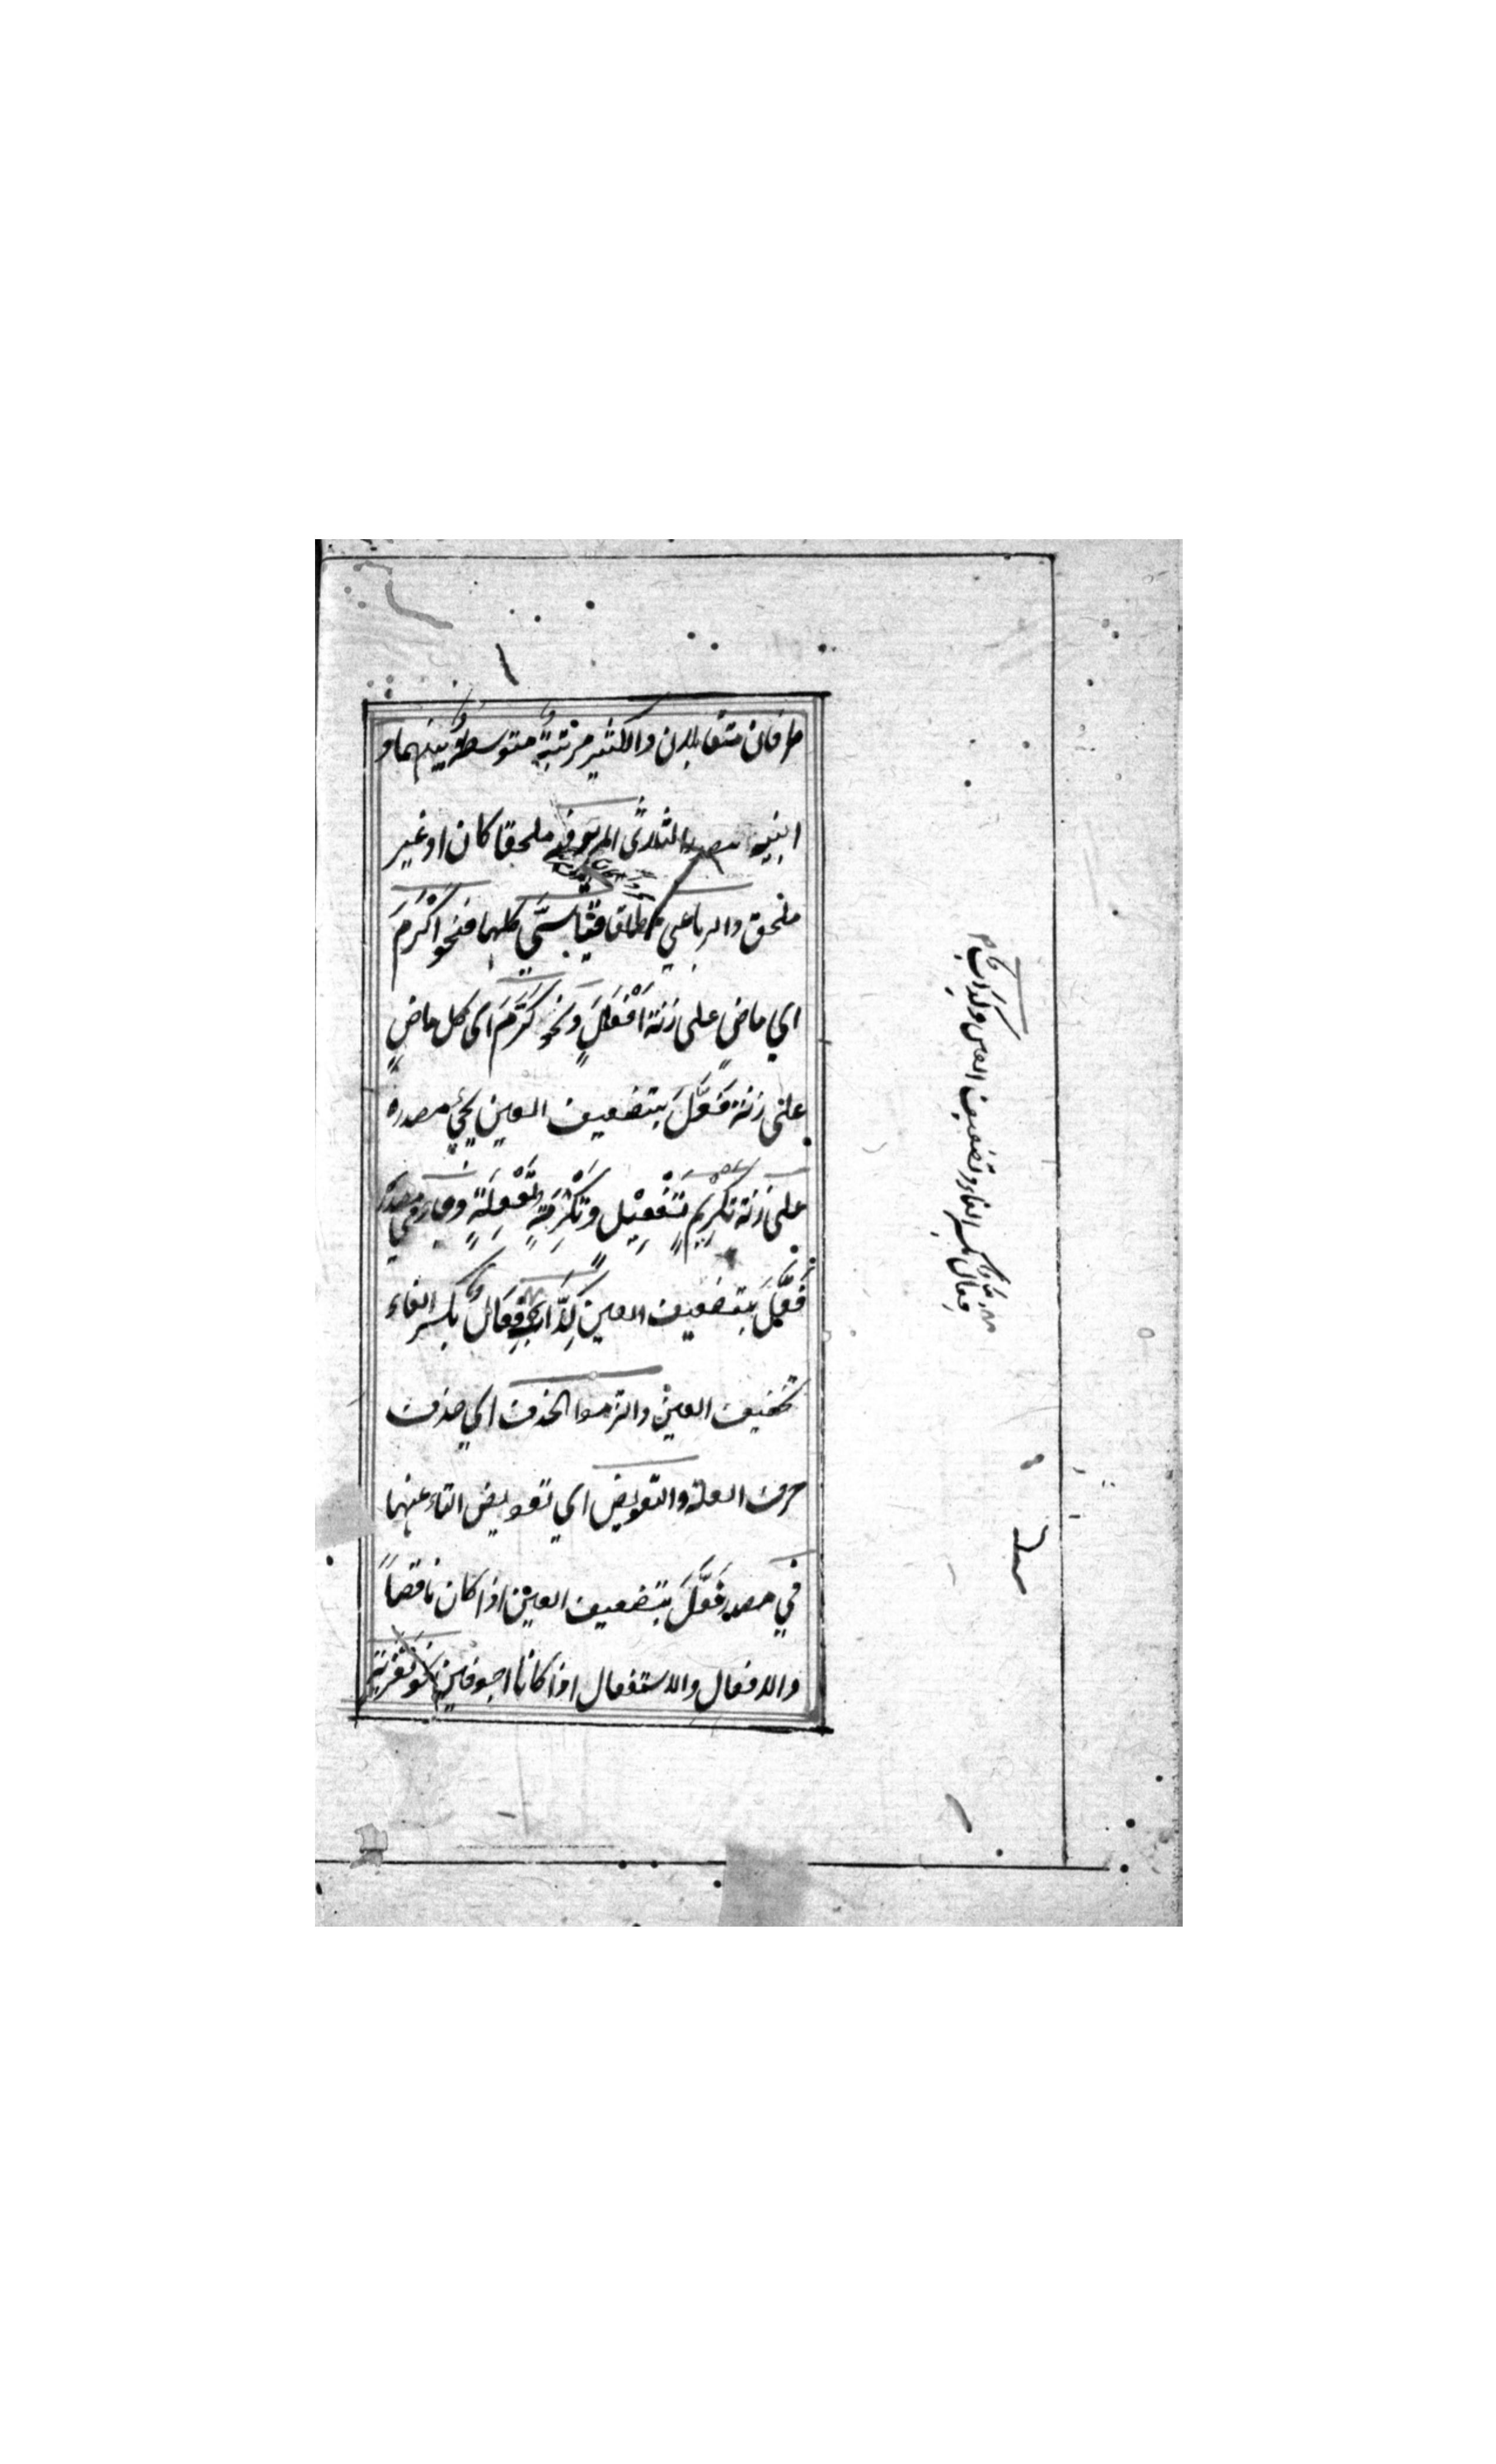 طرفان متقابلان والكثير مرتبة متوسطة بينهما و
ابنية مصدر الثلاثى المزيد فيه ملحقا كان او غير
ملحق والرباعي مطلقا قياسىّ كلها فنحو اَكْرَمَ
اي ماضٍ على زنة اَفْعَلَ ونحو كَرَّمَ اى كل ماضٍ
على زنة فَعَّلَ بتضعيف العين يجيُ مصدره
على زنة تكْرِيمٍ تَفْعِيْلٍ وتَكْرِمَةٍ تَفْعِلَةٍ وجاء في مصدر
فَعَّلَ بتضعيف العين كِذَّاب فِعَال بكسر الفاء
تخفيف العين والتزموا الحذف اي حذف
حرف العلة والتعويض اي تعويض التاء عنها
في مصدر فَعَّلَ بتضعيف العين اذا كان ناقصاً
والافعال والاستفعال اذا كانا اجوفين نحو تعزية
فعال بكسر الفاء وتضعيف العين وكذاب